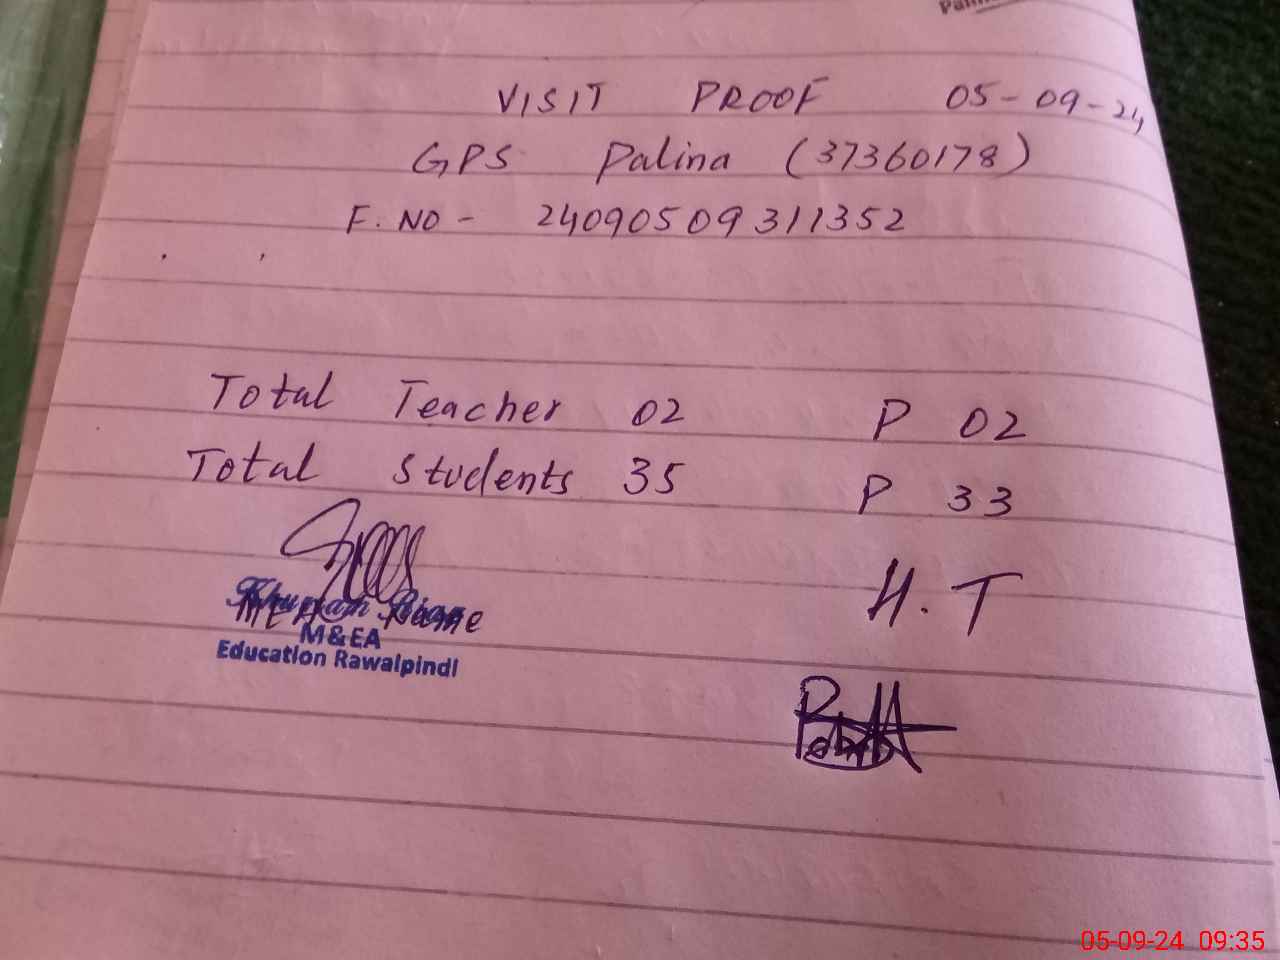 VISIT PROOF 05-09-24
GPS Palina (37360178)
F. NO - 24090509311352
Total Teacher 02 P 02
Total Students 35 P 33
H.T
MEA Name
M&EA
Education Rawalpindi
05-09-24 09:35